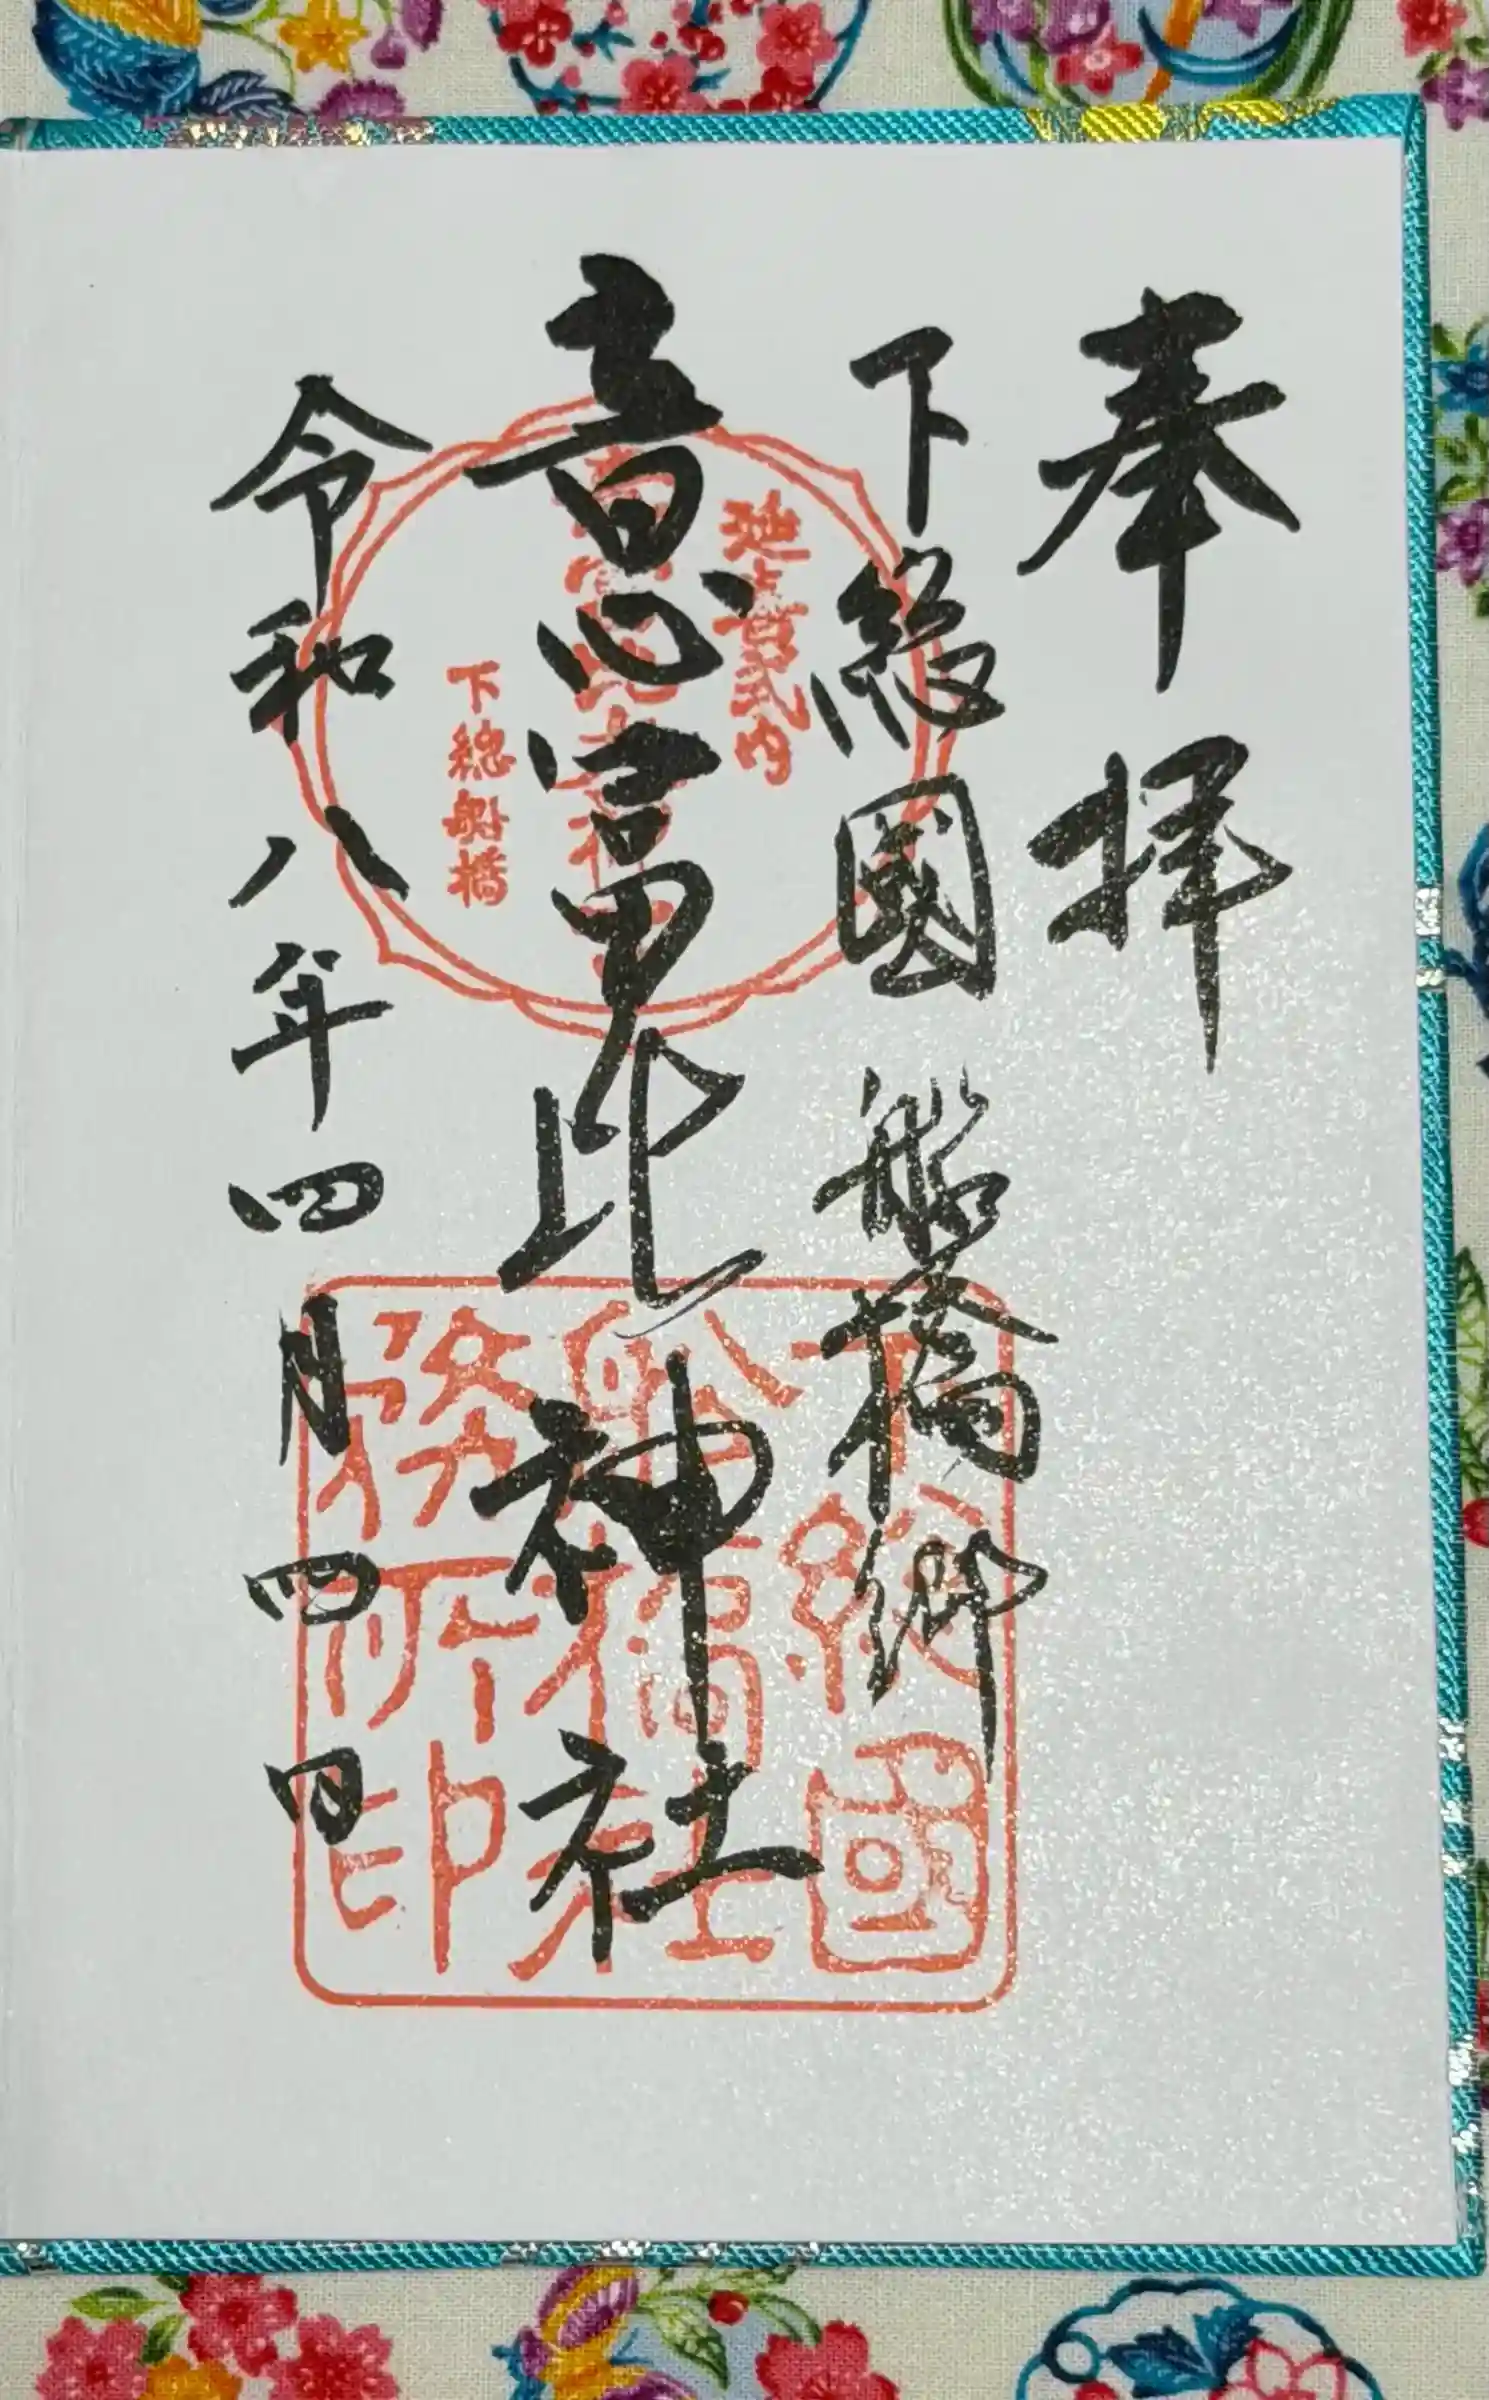 奉拝
下總國船橋郷
意富比神社
令和八年四月四日
延喜式内
意富比神社
下總船橋
下總國
船橋社
務所印